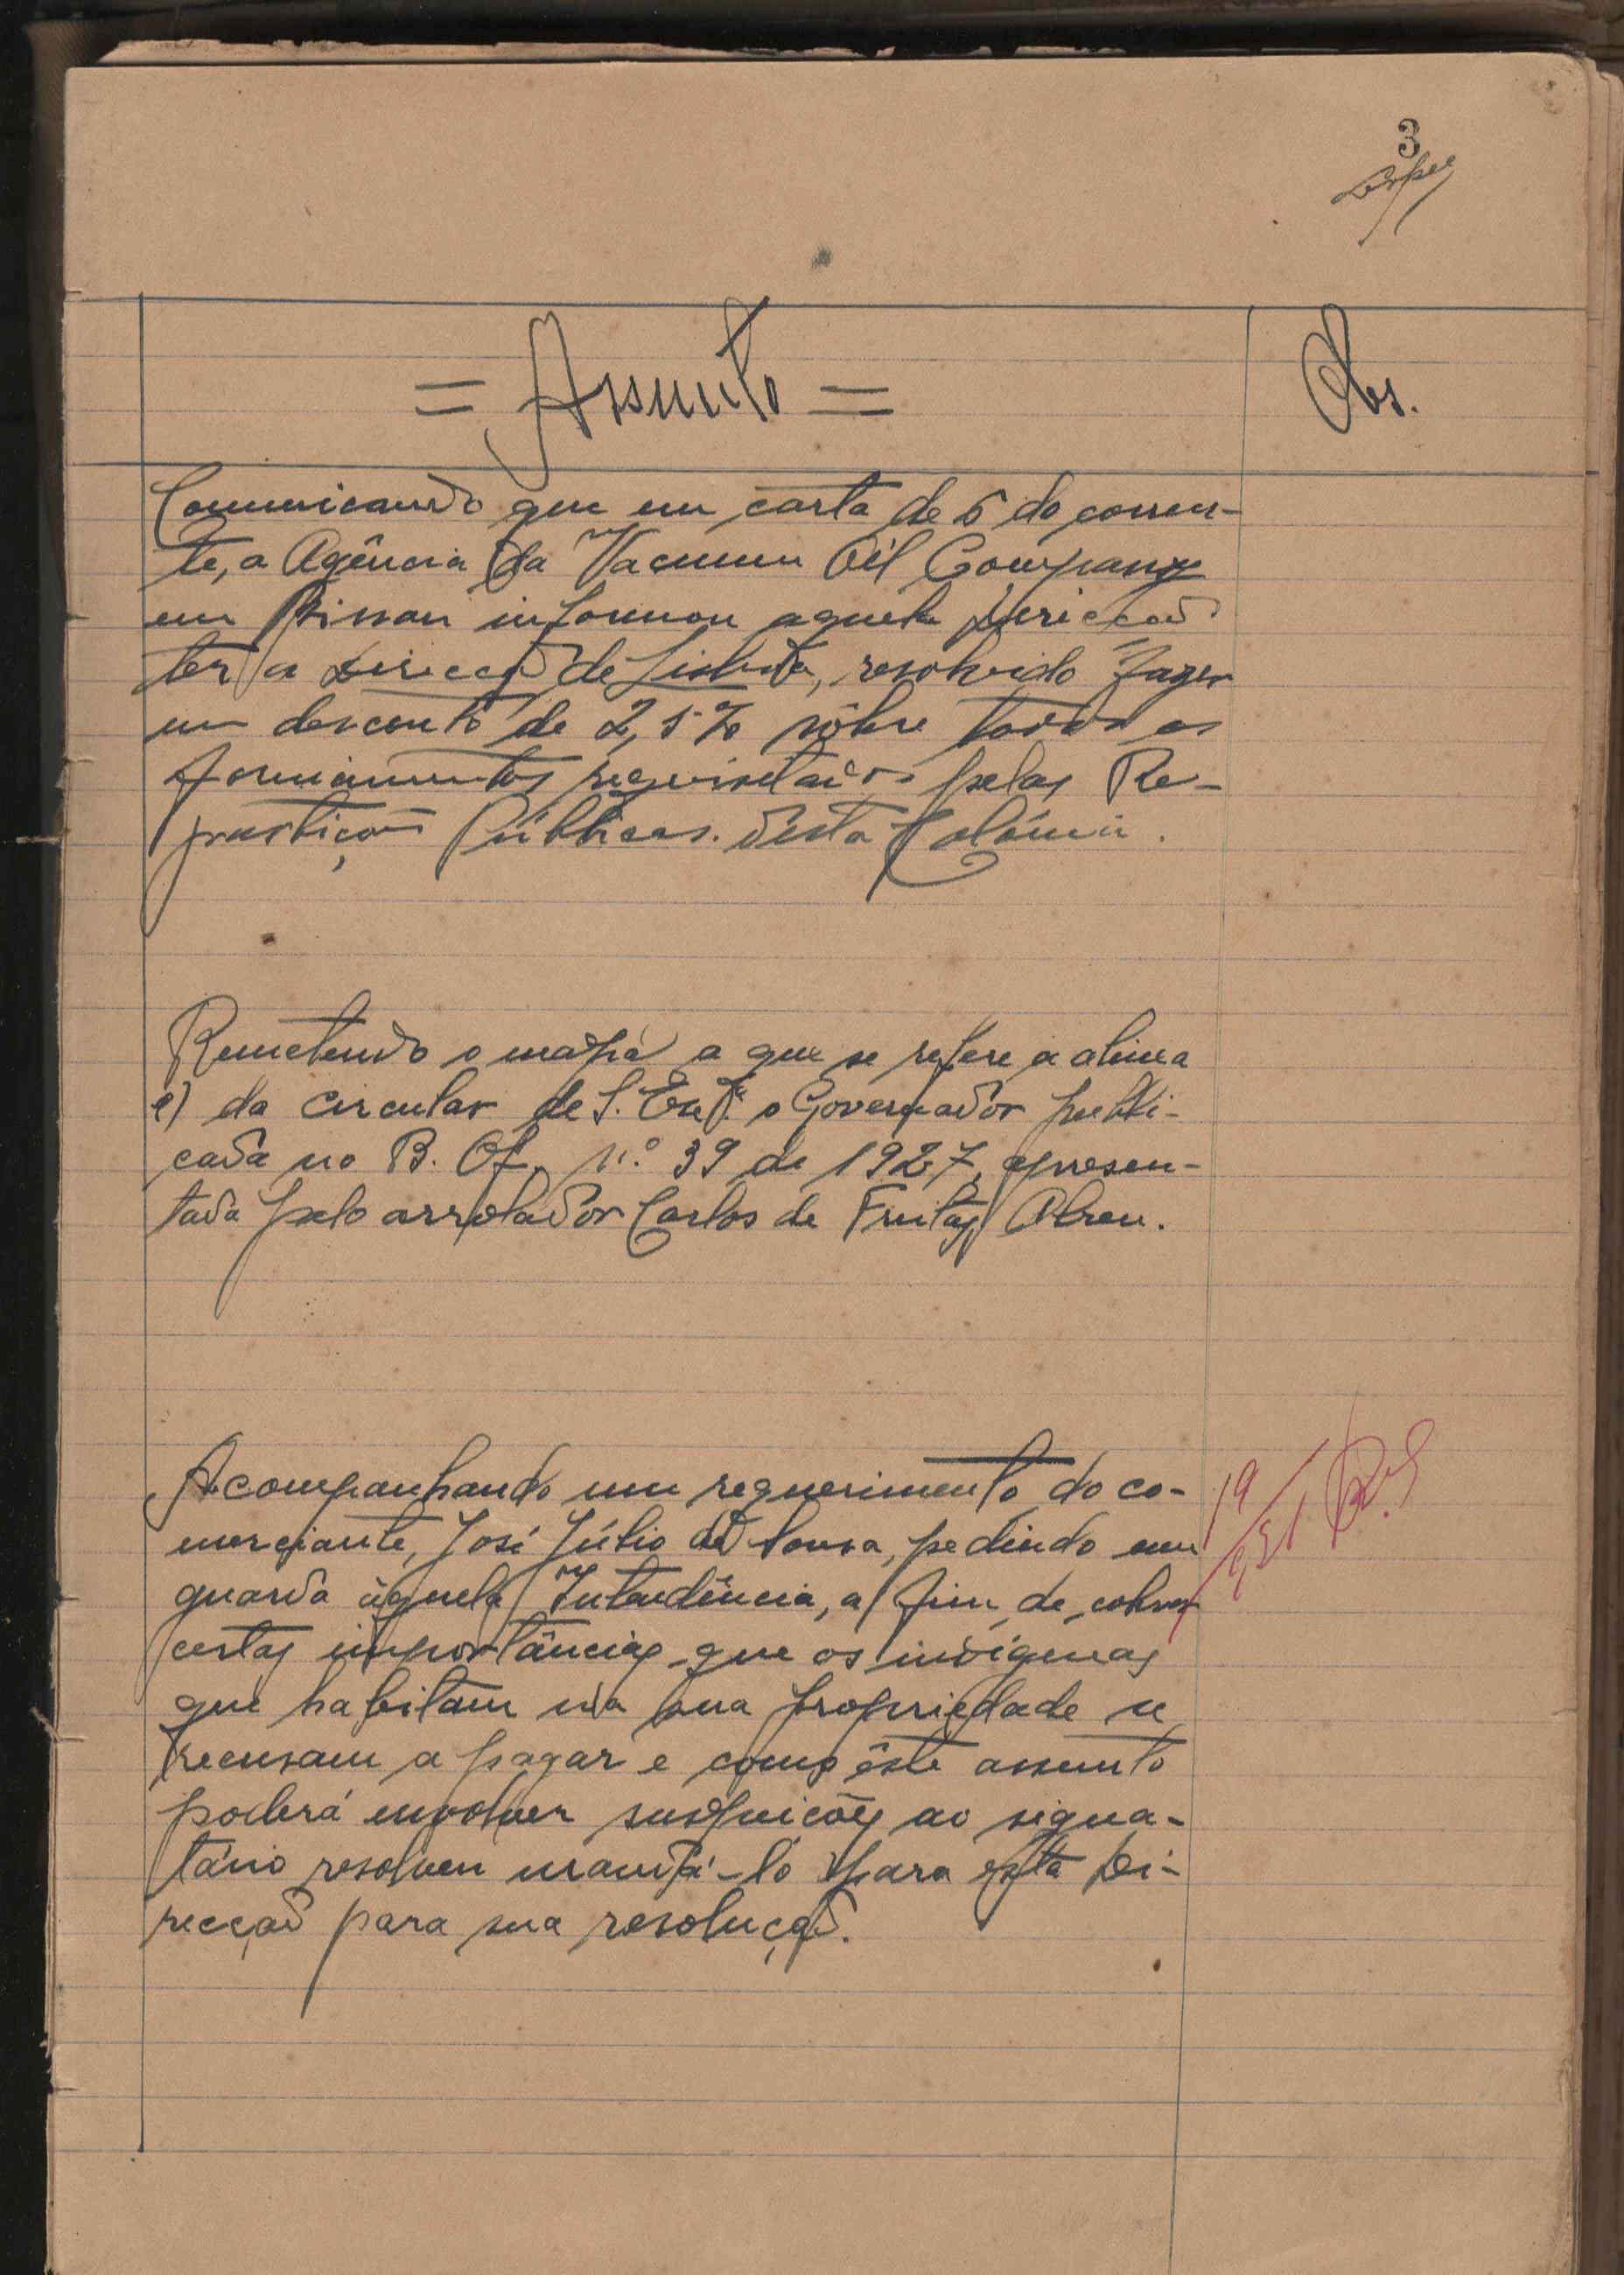 3
= Assunto =
Obs.
Comunicando que em carta de 6 do corren-
te, a Agência da Vacuum Oil Company
em Bissau informou aquela Direcção
ter a Direcção de Lisboa, resolvido fazer
um desconto de 2,5% sôbre todos os
fornecimentos requisitados pelas Re-
partições Públicas desta Colónia.
Remetendo o mapa a que se refere a alinea
e) da circular de S. Exª. o Governador publi-
cada no B. Of. n.º 39 de 1927, apresen-
tada pelo arrolador Carlos de Freitas Abreu.
Acompanhando um requerimento do co-
merciante, José Júlio de Sousa, pedindo um
guarda àquela Intendência, a fim de cobrar
certas importâncias que os indígenas
que habitam na sua propriedade se
recusam a pagar e como êste assunto
poderá envolver suspeições ao signa-
tário resolveu mandá-lo para esta Di-
recção para sua resolução.
19